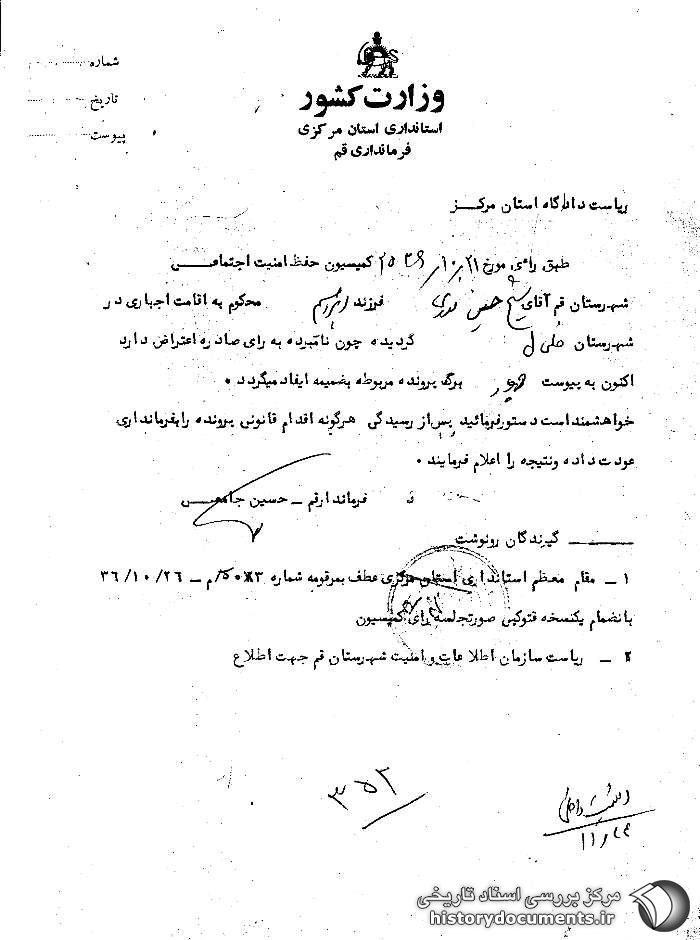 وزارت کشور
استانداری استان مرکزی
فرمانداری قم
شماره
تاریخ
پیوست
ریاست دادگاه استان مرکز
طبق رای مورخ ۲۱/۱۰/۲۵۳۶ کمیسیون حفظ امنیت اجتماعی
شهرستان قم آقای شیخ حسین نوری فرزند ابراهیم محکوم به اقامت اجباری در
شهرستان خلخال گردیده چون نامبرده به رای صادره اعتراض دارد
اکنون به پیوست برگ پرونده مربوطه بضمیمه ایفاد میگردد ۰
خواهشمند است دستور فرمائید پس از رسیدگی هرگونه اقدام قانونی پرونده را بفرمانداری
عودت داده و نتیجه را اعلام فرمایند ۰
فرماندار قم ــ حسین جامعی
گیرندگان رونوشت
۱ ــ مقام معظم استانداری استان مرکزی عطف بمرقومه شماره /م ــ ۳۶/۱۰/۲۶
بانضمام یکنسخه فتوکپی صورتجلسه رای کمیسیون
۲ ــ ریاست سازمان اطلاعات و امنیت شهرستان قم جهت اطلاع
۳۵۳
مرکز بررسی اسناد تاریخی
historydocuments.ir